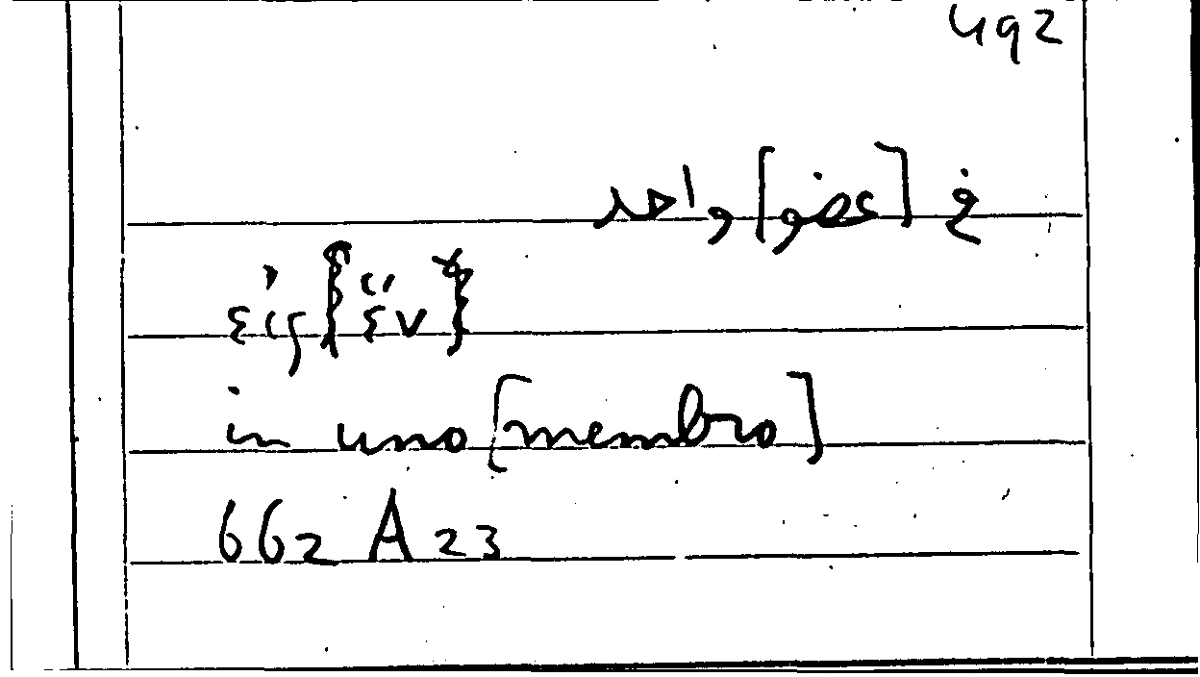 492
في [عضو] واحد
εἰς {ἕν}
in uno [membro]
662 A 23